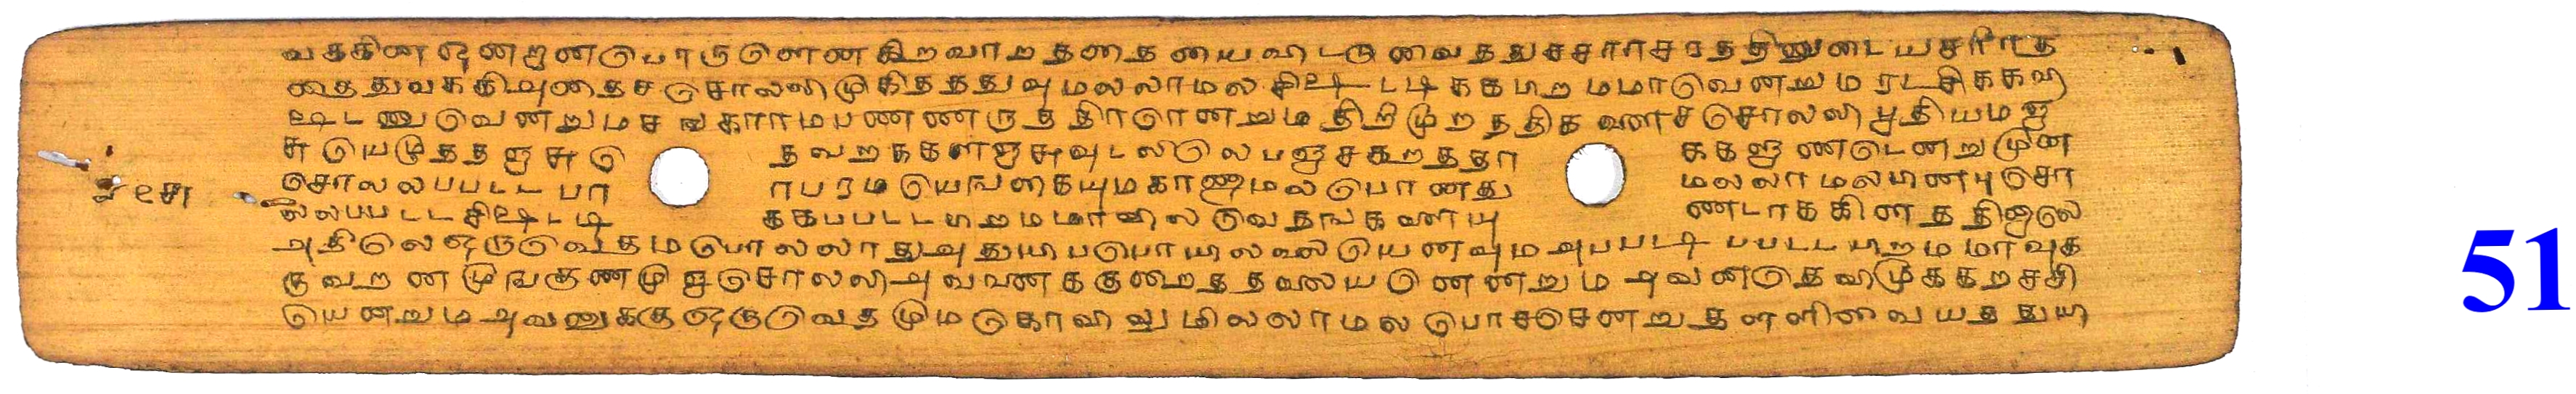 வககின ஒனறனபொருளென கிறவாறததை யைவிடருவைததுசசராசரததினுடையசரீரத
தைதுவககிவுதைசசொலலிமுகிதததுவுமலலாமல சிஷடடிககபிறமமாவெனறும ரடசிககவி
ஷடணுவெனறும சஙகாரமபணணருததிரரெனறும திறிமூறததிகளைசசொலலி பூதியமஞ
சுயெமூததஞசு தவறககளஞசுவுடலிலெபஞசகிறததா ககஞணடெனறுமுன
சொலலபபடட பா ரபரமயெஙகையுமகாணுமலபொனது மலலாமலமுனபுசொ
லலபபடட சிஷடடி ககபபடட பிறமமாவில ருவதஙகளையு ணடாககினத தினாலெ
அதிலெஒருவெதமபொலலாதுஅதுயிபபொயிலலையெனவும அபபடி பபடட பிறமமாவுக
குவறனமுஙகுணமுஞசொலலிஅவவனககுறைததலையனெனறும அவனதெவிமூககறசசி
யெனறும அவனுககுஒருவெதமுமகொவிலுமிலலாமல பொசசெனறுதளளிவையததுயி
51